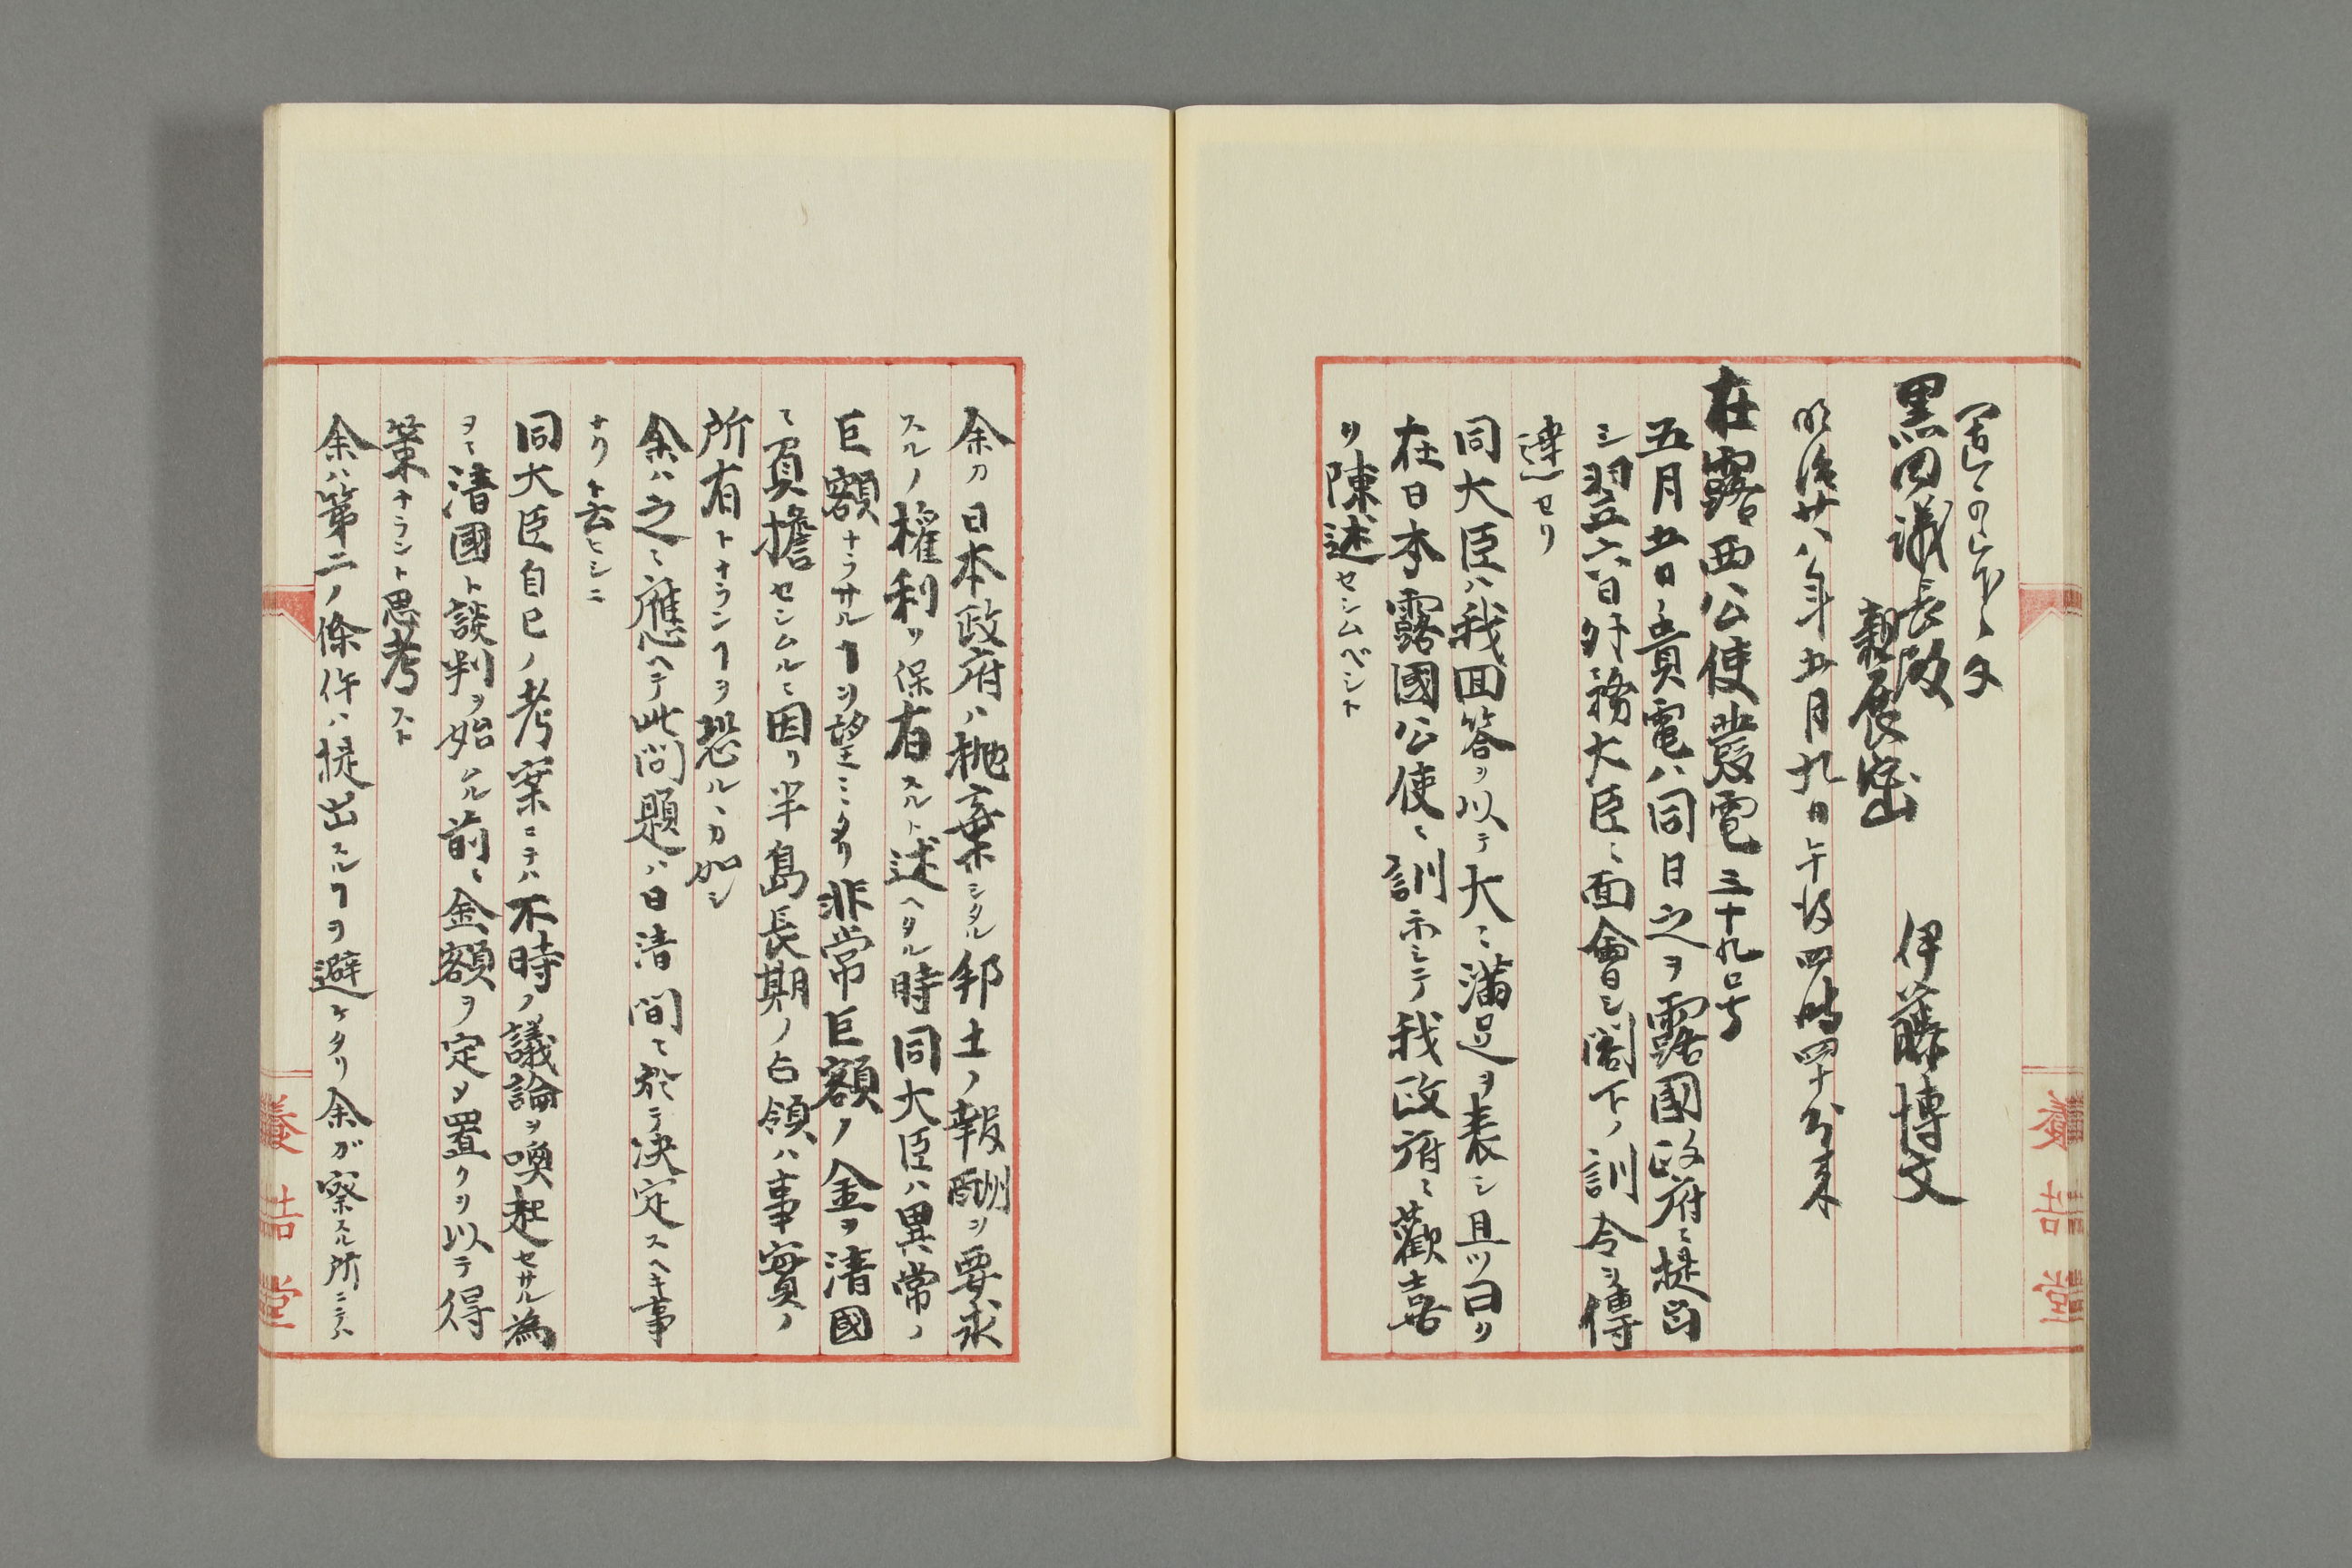 黒田議長殿 伊藤博文
親展密
明治廿八年五月九日午後四時四十分来
在露西公使發電三十九号
五月五日ノ貴電ハ同日之ヲ露國政府ニ提出
シ翌六日外務大臣ニ面會シ閣下ノ訓令ヲ傳
達セリ
同大臣ハ我回答ヲ以テ大ニ満足ヲ表シ且ツ曰ク
在日本露國公使ニ訓示シテ我政府ニ歡喜
ヲ陳述セシムベシト
余カ日本政府ハ抛棄シタル邦土ノ報酬ヲ要求
スルノ權利ヲ保有スルト述ヘタル時同大臣ハ異常ノ
巨額ナラサルヿヲ望ミ非常巨額ノ金ヲ清國
ニ負擔セシムルニ因リ半島長期ノ占領ハ事實ノ
所有トナランヿヲ恐ルヽカ如シ
余ハ之ニ應ヘテ此問題ハ日清間ニ於テ決定スヘキ事
ナリト云ヒシニ
同大臣自己ノ考案ニテハ不時ノ議論ヲ喚起セサル為
ヲニ清國ト談判ヲ始ムル前ニ金額ヲ定メ置クヲ以テ得
策ナラント思考スト
余ハ第二ノ條件ハ提出スルヿヲ避ケタリ余ガ察スル所ニテハ
養喆堂